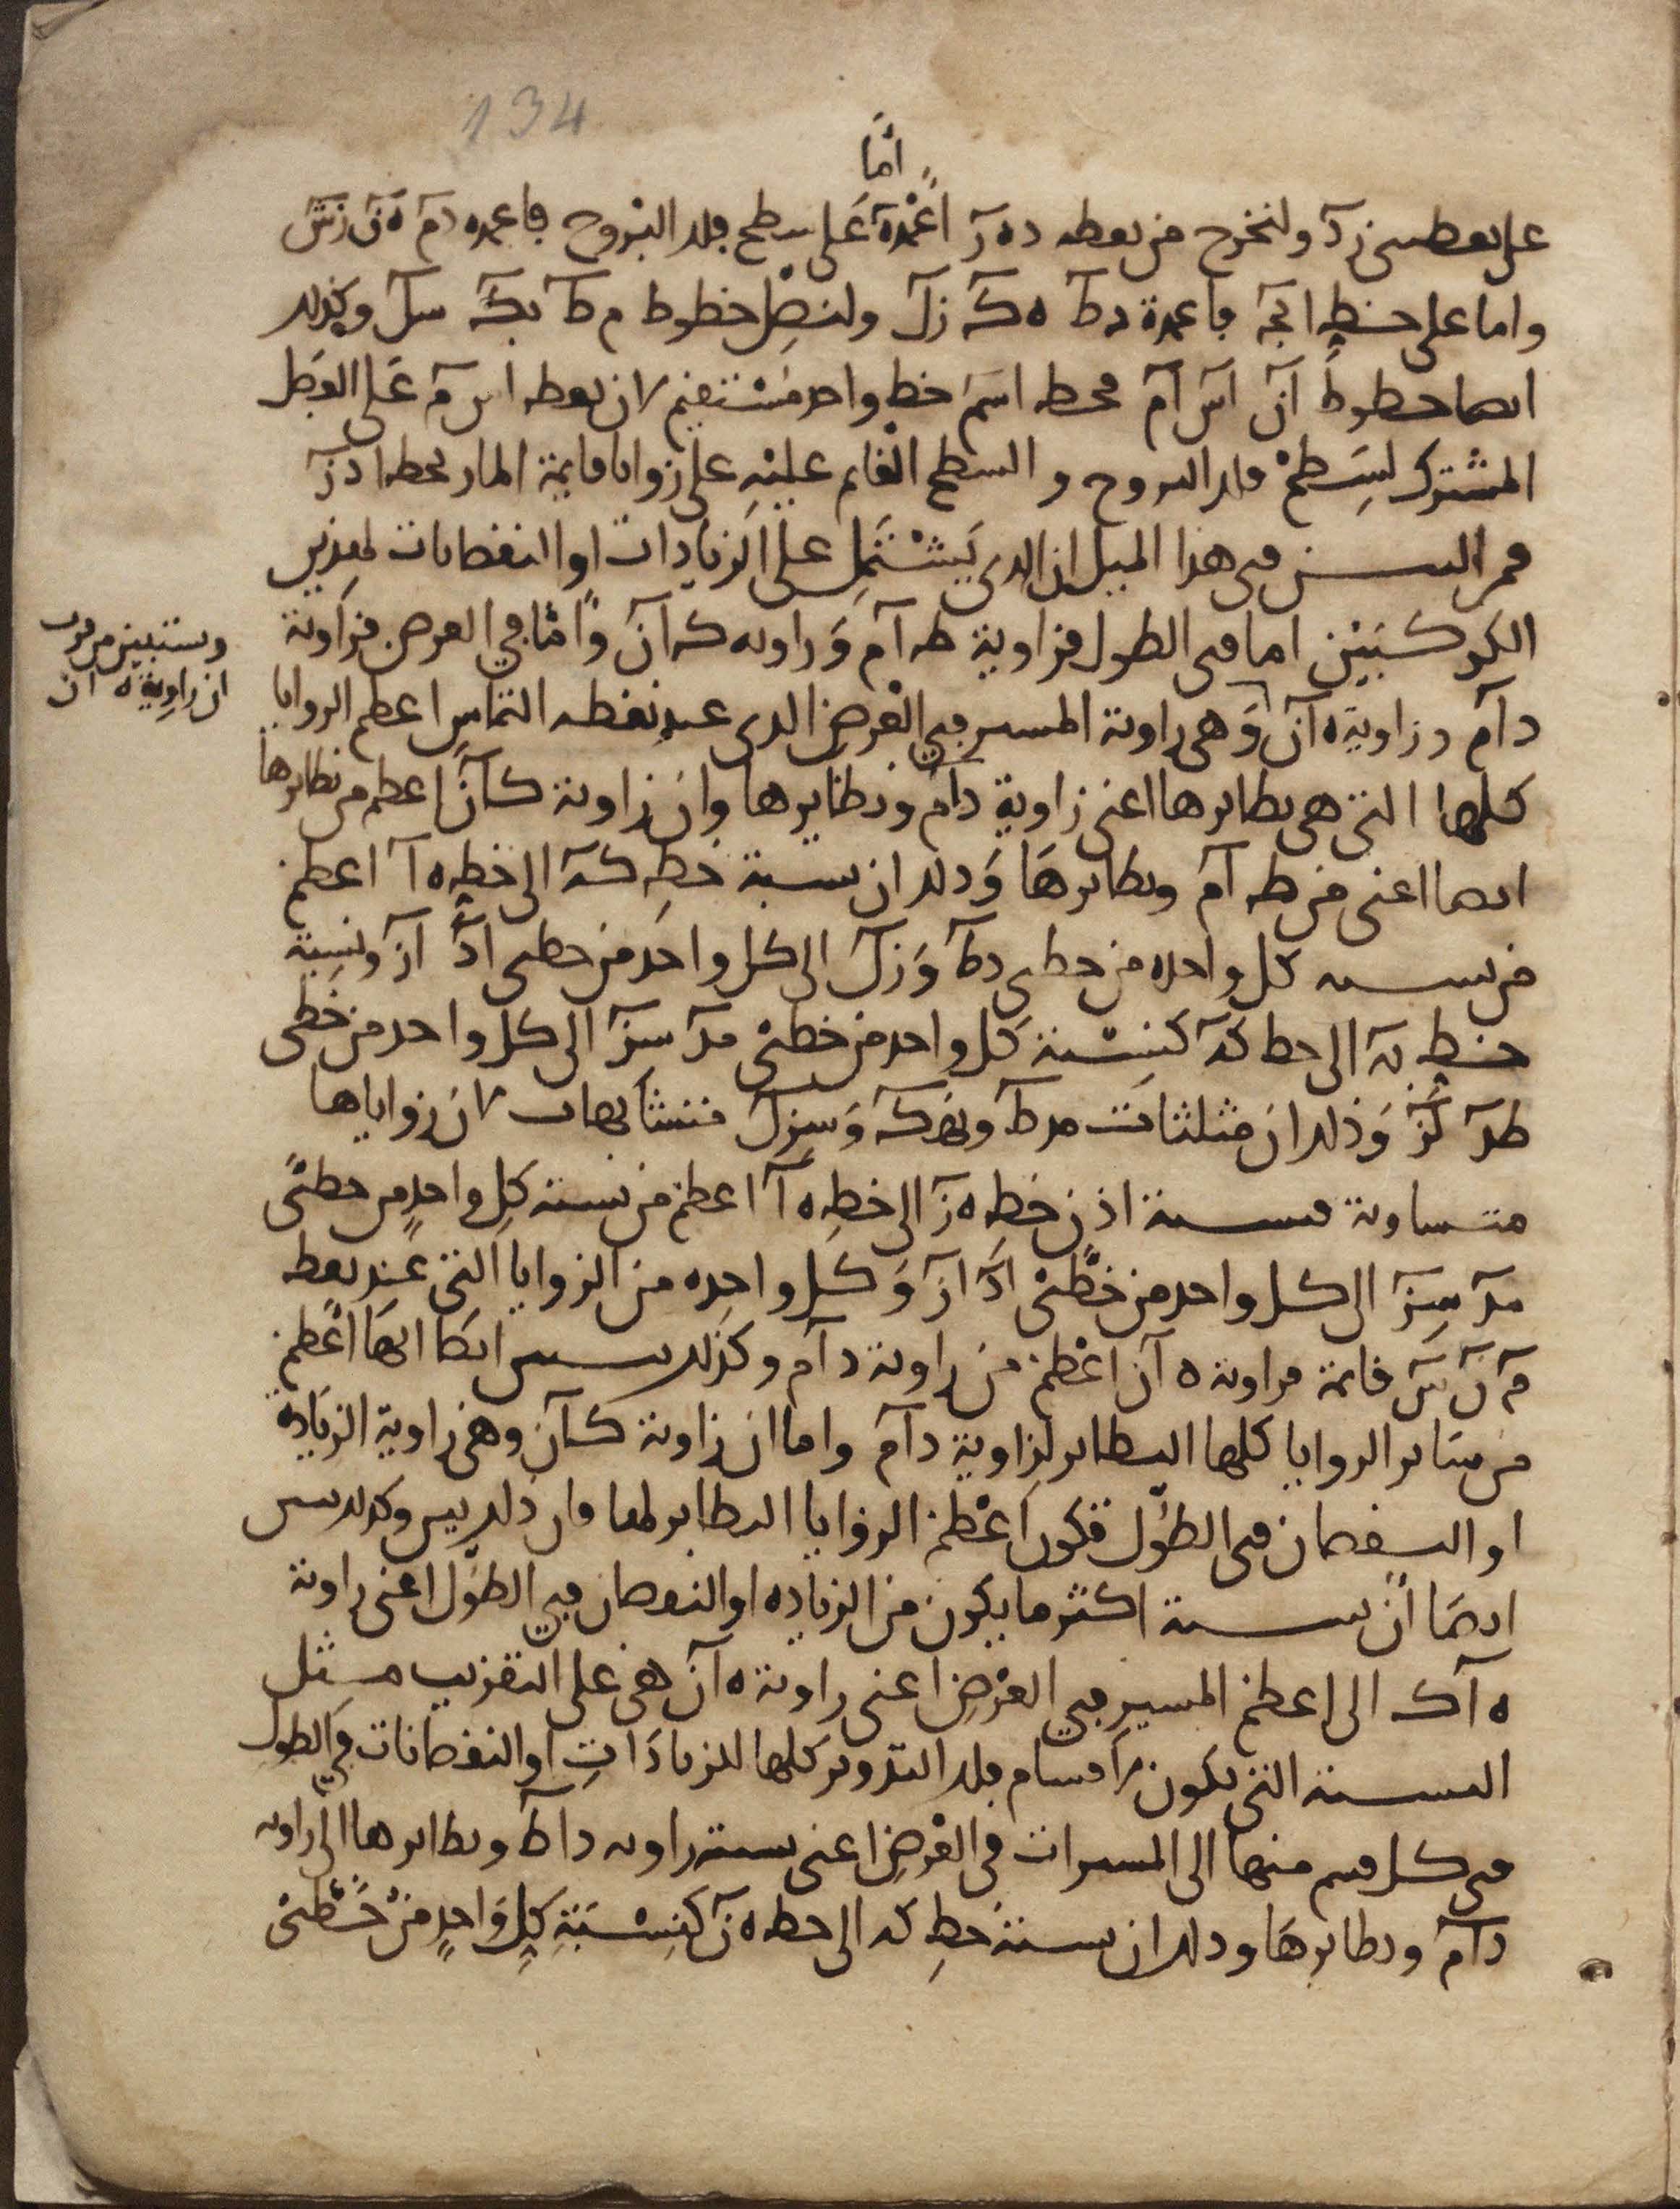 134
اما
على نقطتى ز د ولنخرج من نقطه د ه ز اعمدة على سطح فلك البروج فاعمده د م ه ن ز س
واما على خط ا ج فاعمدة د ط ه ك ز ل ولنصل خطوط م ط ن ك س ل وكذلك
ايضا خطوط ا ن ا س ا م فخط ا س م خط واحد مستقيم لان نقطه ا س م على الفصل
المشترك لسطح فلك البروح و السطح القايم عليه على زوايا قايمة المار بخط ا د ز
فمن البين فى هذا الميل ان الذى يشتمل على الزيادات او النقصانات لهذين
الكوكبين اما فى الطول فزاوية ط ا م و زاويه ك ا ن و اما في العرض فزاوية
وسنبين من قرب
ان زاوية ه ا ن
د ا م و زاوية ه ا ن و هى زاوية المسير في العرض الذى عند نقطه التماس اعظم الزوايا
كلها التى هى نظايرها اعنى زاوية د ا م ونظايرها وان زاوية ك ا ن اعظم من نظايرها
ايضا اعنى من ط ا م ونظايرها وذلك ان نسبة خط ك ه الى خط ه ا اعظم
من نسبه كل واحده من خطى د ط و ز ل الى كل واحد من خطى ا د ا ز ونسبة
خط ن ه الى خط ك ه كنسبة كل واحد من خطى م د س ز الى كل واحد من خطى
ط د ل ز وذلك ان مثلثات م د ط و ن ه ك و س ز ل متشابهات لان زواياها
متساوية فنسبة اذن خط ه ن الى خط ه ا اعظم من نسبة كل واحد من خطى
م د س ز الى كل واحد من خطى ا د ا ز و كل واحده من الزوايا التى عند نقط
م ن س قايمة فزاوية ه ا ن اعظم من زاوية د ا م وكذلك يتبين ايضا انها اعظم
من ساير الزوايا كلها النظاير لزاوية د ا م واما ان زاوية ك ا ن وهى زاوية الزياده
او النقصان فى الطول فتكون اعظم الزوايا النظاير لها فان ذلك بين وكذلك يتبين
ايضا ان نسبة اكثر ما يكون من الزياده او النقصان في الطول اعنى زاوية
ه ا ك الى اعظم المسير في العرض اعنى زاوية ه ا ن هى على التقريب مثل
النسبة التى تكون لاقسام فلك التدوير كلها للزيادات او النقصانات في الطول
فى كل قسم منها الى المسيرات في العرض اعنى نسبة زاويه د ا ط ونظايرها الى زاويه
د ا م ونظايرها وذلك ان نسبة خط ك ه الى خط ه ن كنسبة كل واحد من خطى